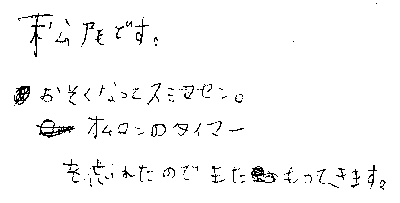 松尾です。
おそくなってスミマセン。
オムロンのタイマー
を忘れたのでまたもってきます。